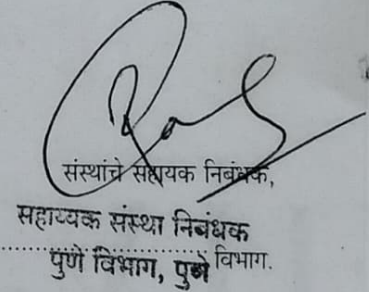 संस्थांचे सहायक निबंधक,
सहाय्यक संस्था निबंधक
पुणे विभाग, पुणे विभाग.